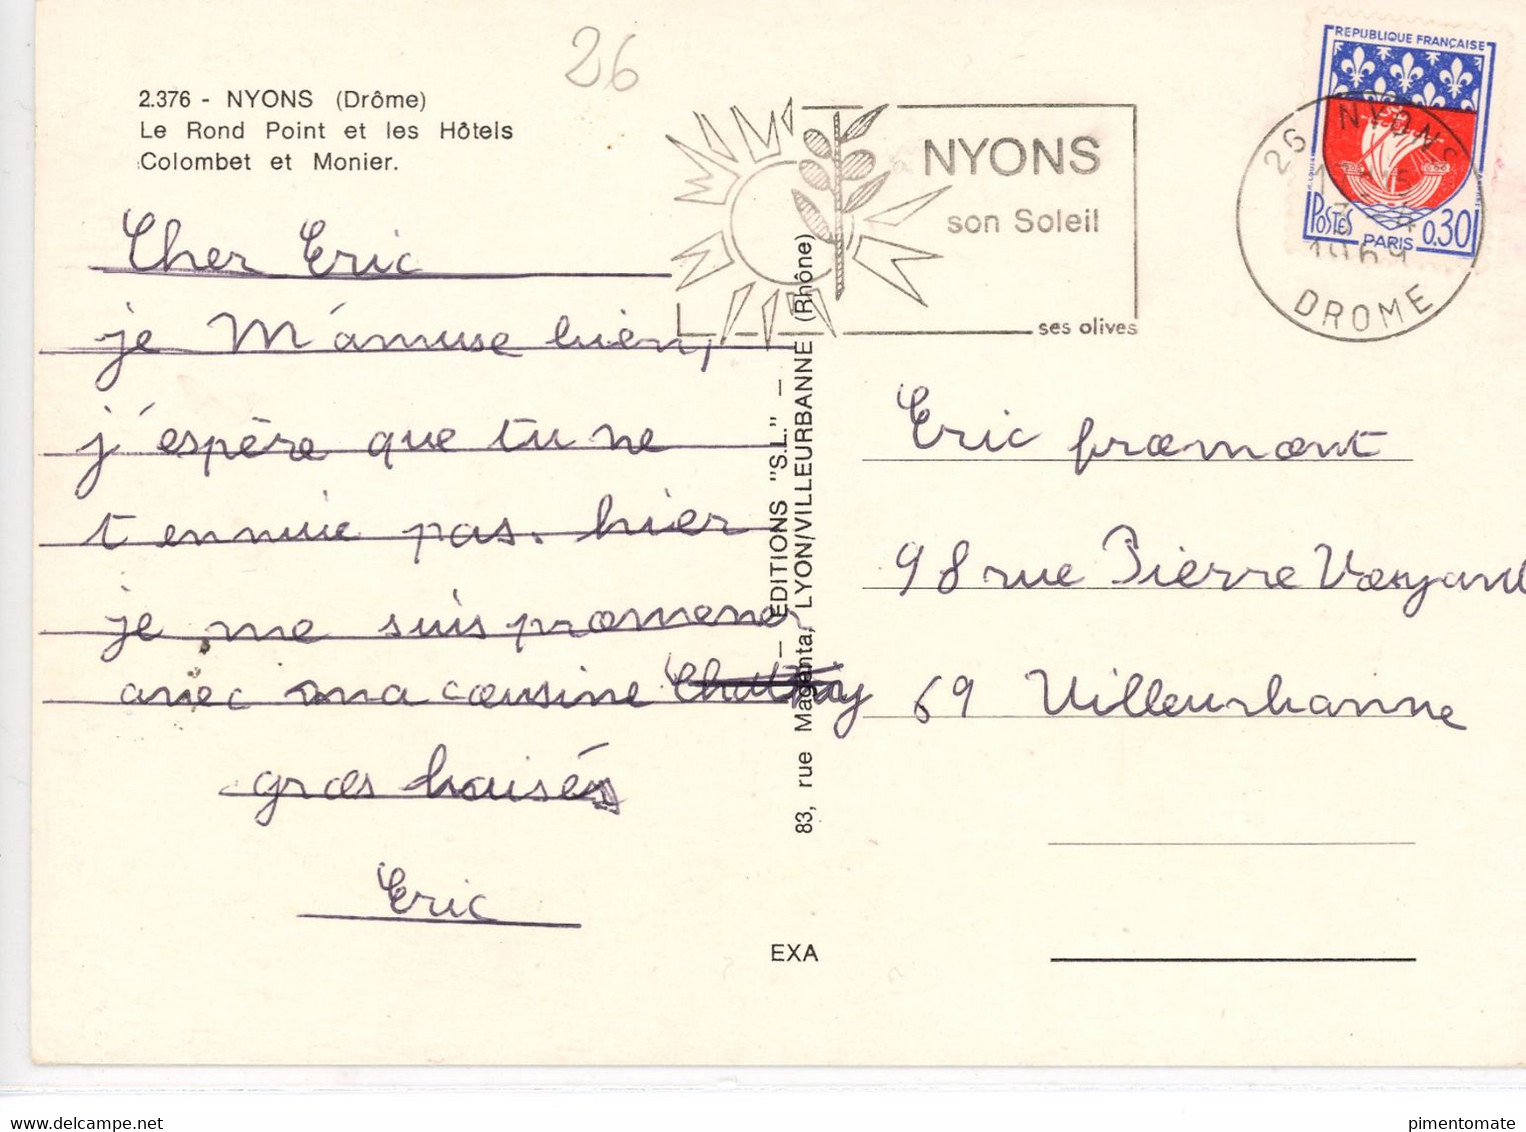 26
2.376 - NYONS (Drôme)
Le Rond Point et les Hôtels
Colombet et Monier.
Cher Eric
je m'amuse bien,
j'espère que tu ne
t ennuie pas. hier
je me suis promener
avec ma cousine
gros baisés
Eric
NYONS
son Soleil
ses olives
REPUBLIQUE FRANÇAISE
POSTES
PARIS
0.30
26 NYONS
1969
DROME
— EDITIONS "S.L." —
83, rue Magenta, LYON/VILLEURBANNE (Rhône)
EXA
Eric fromont
98 rue Pierre
69 Villeurbanne
pimentomate